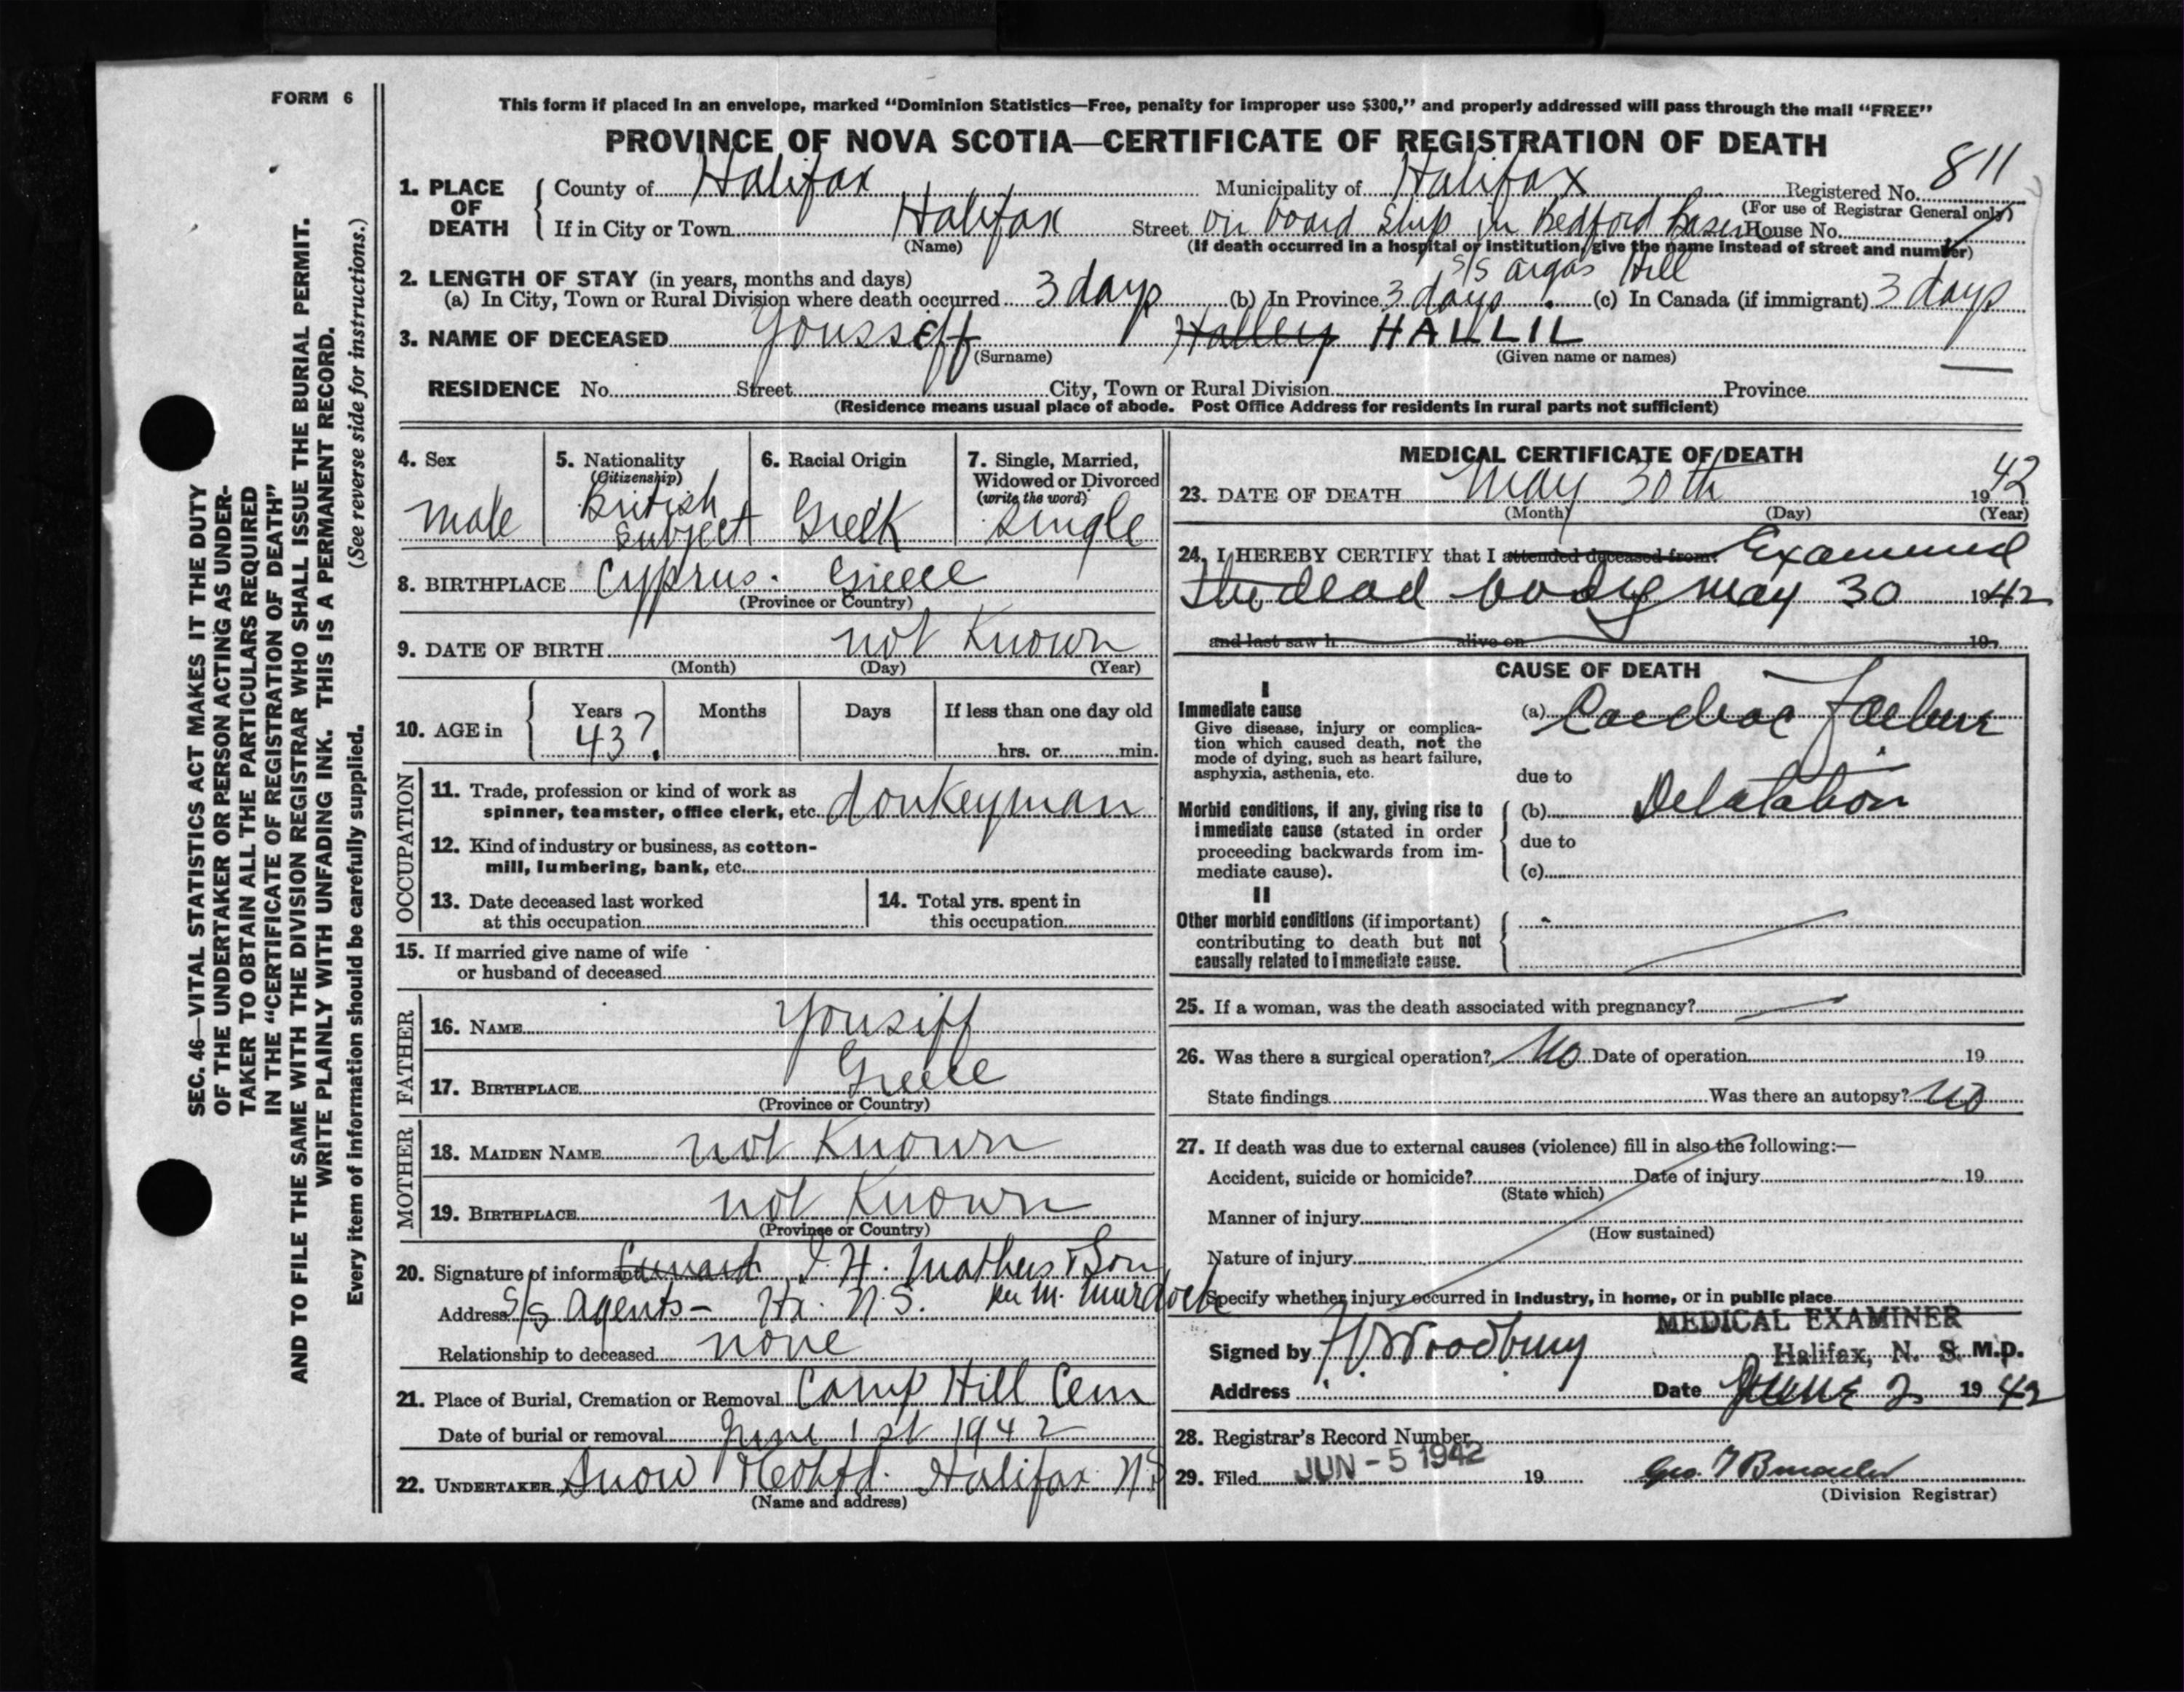 FORM 6
This form if placed in an envelope, marked "Dominion Statistics—Free, penalty for improper use $300," and properly addressed will pass through the mail "FREE"
PROVINCE OF NOVA SCOTIA—CERTIFICATE OF REGISTRATION OF DEATH
1. PLACE OF DEATH
County of Halifax Municipality of Halifax Registered No. 811
(For use of Registrar General only)
If in City or Town Halifax Street on board Ship in Bedford Basin House No.
(Name) (If death occurred in a hospital or institution, give the name instead of street and number)
S/S Argos Hill
2. LENGTH OF STAY (in years, months and days)
(a) In City, Town or Rural Division where death occurred 3 days (b) In Province 3 days (c) In Canada (if immigrant) 3 days
3. NAME OF DECEASED Youssiff Halley HALLIL
(Surname) (Given name or names)
RESIDENCE No. Street City, Town or Rural Division Province
(Residence means usual place of abode. Post Office Address for residents in rural parts not sufficient)
4. Sex
male
5. Nationality
(Citizenship)
British
Subject
6. Racial Origin
Greek
7. Single, Married,
Widowed or Divorced
(write the word)
Single
8. BIRTHPLACE Cyprus. Greece
(Province or Country)
9. DATE OF BIRTH not Known
(Month) (Day) (Year)
10. AGE in
Years Months Days If less than one day old
43? hrs. or min.
OCCUPATION
11. Trade, profession or kind of work as
spinner, teamster, office clerk, etc. donkeyman
12. Kind of industry or business, as cotton-
mill, lumbering, bank, etc.
13. Date deceased last worked
at this occupation
14. Total yrs. spent in
this occupation
15. If married give name of wife
or husband of deceased
FATHER
16. NAME Yousiff
17. BIRTHPLACE Greece
(Province or Country)
MOTHER
18. MAIDEN NAME not Known
19. BIRTHPLACE not Known
(Province or Country)
20. Signature of informant Cunard I. H. Mathers & Son
Address S/S Agents - Hx. N.S. per M. Murdock
Relationship to deceased none
21. Place of Burial, Cremation or Removal Camp Hill Cem
Date of burial or removal June 1st 1942
22. UNDERTAKER Snow & Co Ltd. Halifax NS
(Name and address)
MEDICAL CERTIFICATE OF DEATH
23. DATE OF DEATH May 30th 1942
(Month) (Day) (Year)
24. I HEREBY CERTIFY that I attended deceased from: Examined
the dead body May 30 1942
and last saw h alive on 19
CAUSE OF DEATH
I
Immediate cause
Give disease, injury or complica-
tion which caused death, not the
mode of dying, such as heart failure,
asphyxia, asthenia, etc.
(a) Cardiac Failure
due to
Morbid conditions, if any, giving rise to
immediate cause (stated in order
proceeding backwards from im-
mediate cause).
(b) Delatation
due to
(c)
II
Other morbid conditions (if important)
contributing to death but not
causally related to immediate cause.
25. If a woman, was the death associated with pregnancy?
26. Was there a surgical operation? No Date of operation 19
State findings Was there an autopsy? No
27. If death was due to external causes (violence) fill in also the following:—
Accident, suicide or homicide? Date of injury 19
(State which)
Manner of injury
(How sustained)
Nature of injury
Specify whether injury occurred in Industry, in home, or in public place
MEDICAL EXAMINER
Signed by Woodbury Halifax, N. S. M.D.
Address Date June 2 1942
28. Registrar's Record Number
29. Filed JUN - 5 1942 19
(Division Registrar)
SEC. 46—VITAL STATISTICS ACT MAKES IT THE DUTY
OF THE UNDERTAKER OR PERSON ACTING AS UNDER-
TAKER TO OBTAIN ALL THE PARTICULARS REQUIRED
IN THE "CERTIFICATE OF REGISTRATION OF DEATH"
AND TO FILE THE SAME WITH THE DIVISION REGISTRAR WHO SHALL ISSUE THE BURIAL PERMIT.
WRITE PLAINLY WITH UNFADING INK. THIS IS A PERMANENT RECORD.
Every item of information should be carefully supplied. (See reverse side for instructions.)